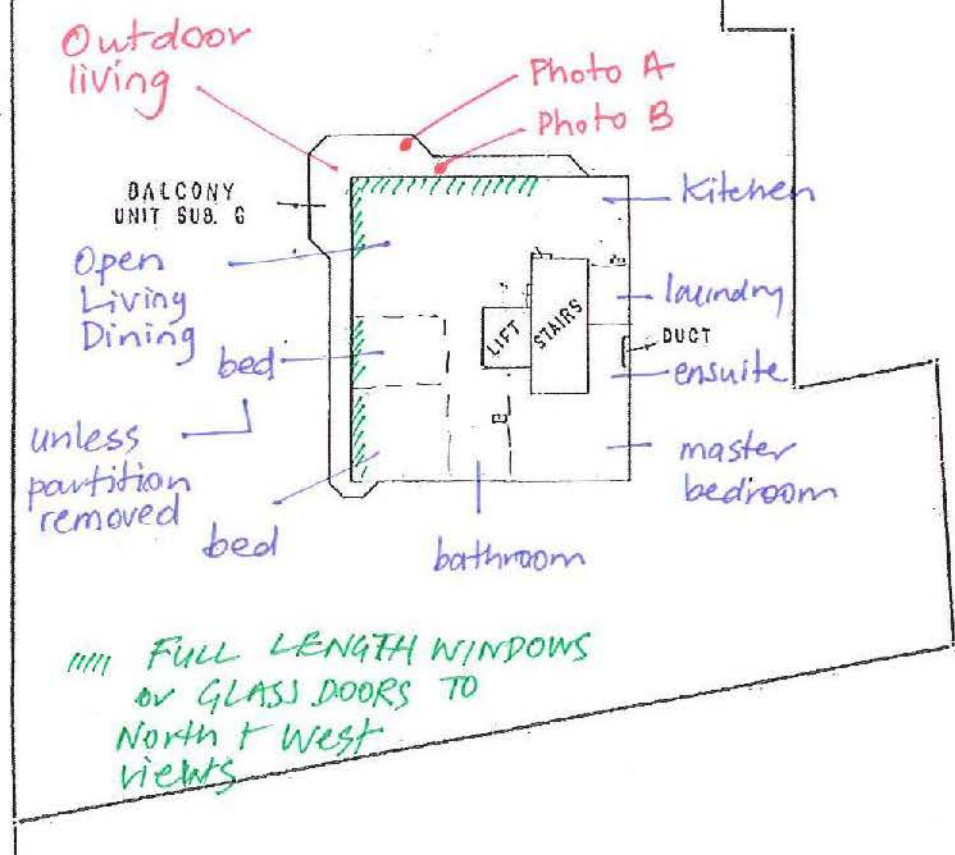 Outdoor
living
Photo A
Photo B
BALCONY
UNIT SUB. 6
Kitchen
Open
Living
Dining
laundry
LIFT
STAIRS
DUCT
bed
ensuite
unless
partition
removed
master
bedroom
bed
bathroom
///// FULL LENGTH WINDOWS
or GLASS DOORS TO
North + West
views